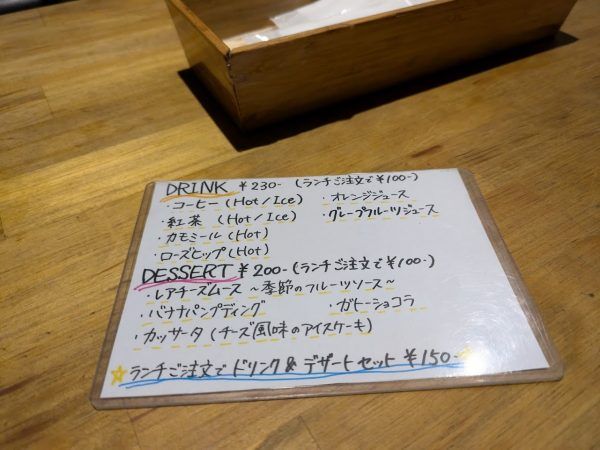 DRINK ¥230- (ランチご注文で¥100-)
・コーヒー (Hot/Ice) ・オレンジジュース
・紅茶 (Hot/Ice) ・グレープフルーツジュース
・カモミール (Hot)
・ローズヒップ (Hot)
DESSERT ¥200- (ランチご注文で¥100-)
・レアチーズムース ～季節のフルーツソース～
・バナナパンプディング ・ガトーショコラ
・カッサータ (チーズ風味のアイスケーキ)
☆ランチご注文で ドリンク & デザートセット ¥150-☆